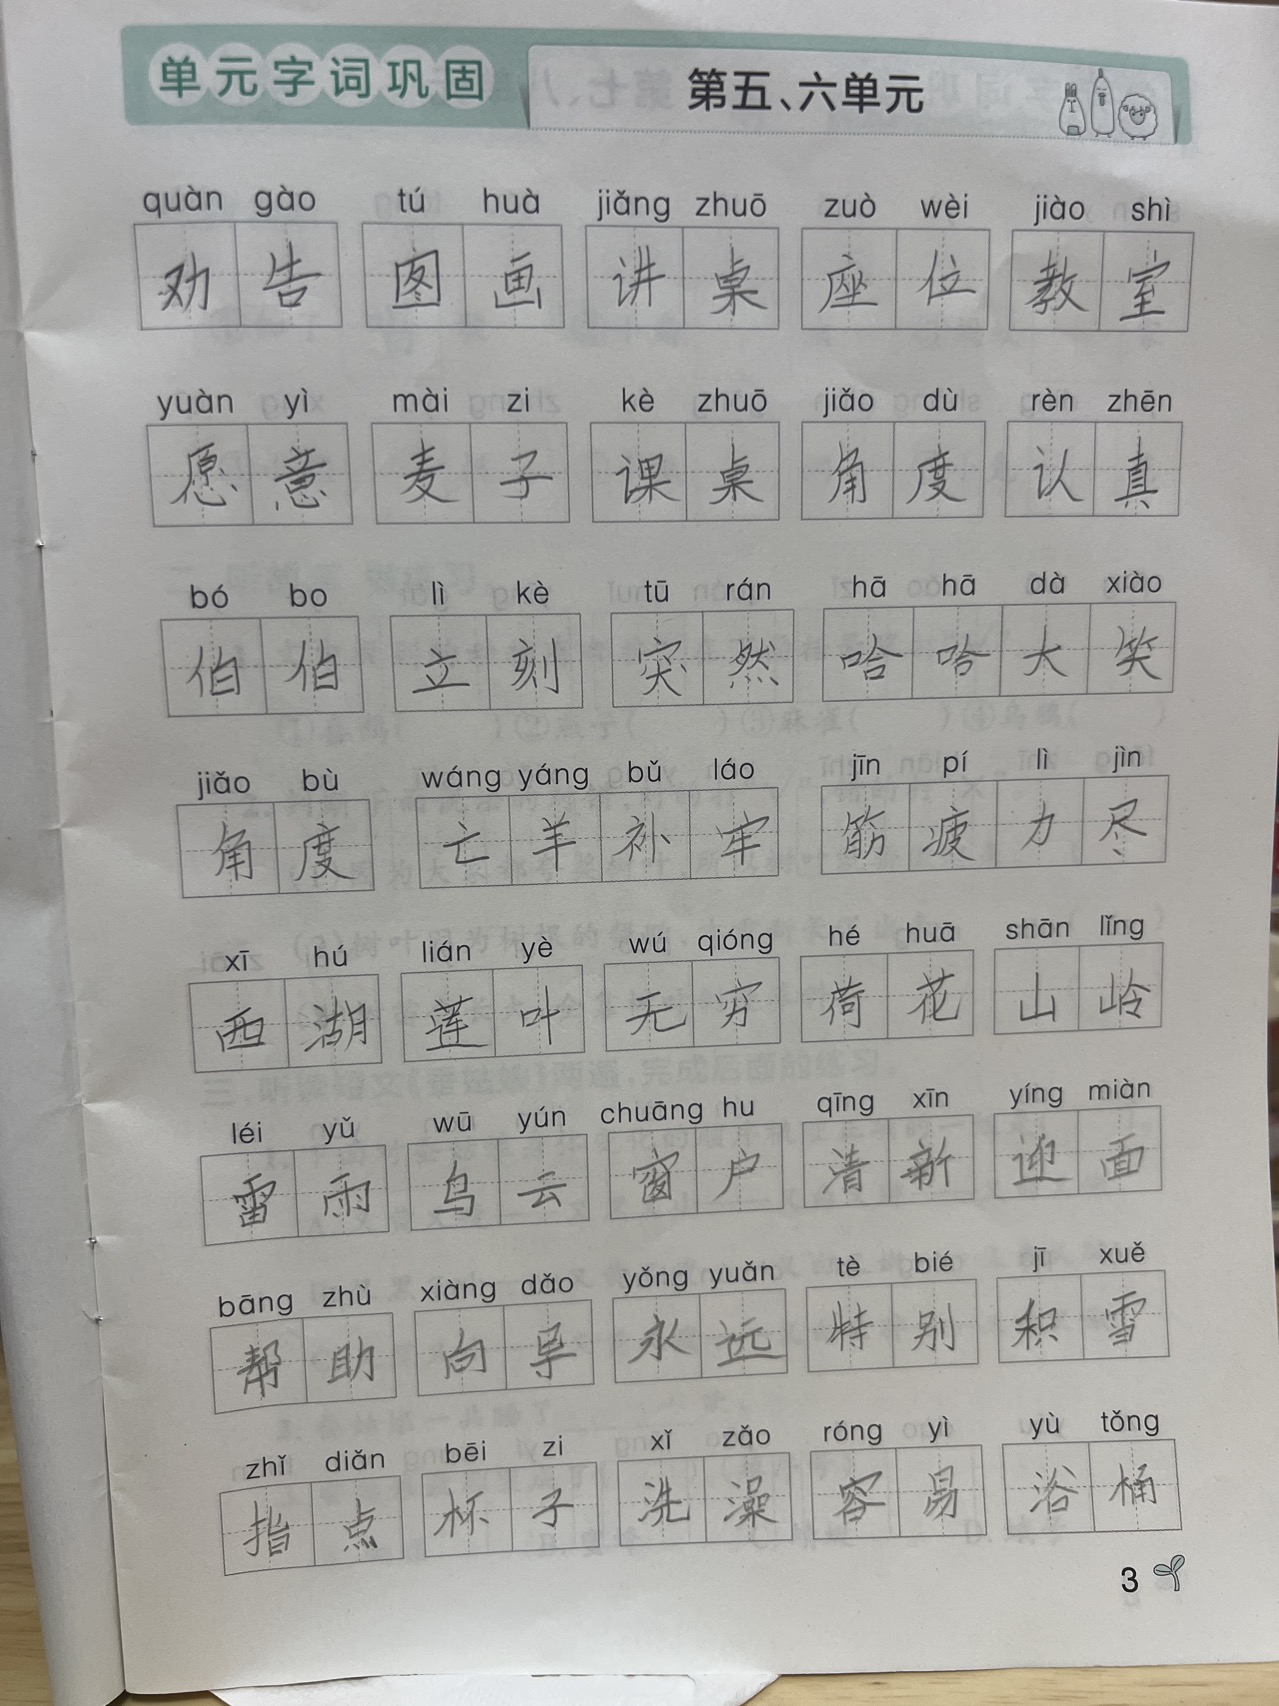 单元字词巩固 第五、六单元
quàn gào tú huà jiǎng zhuō zuò wèi jiào shì
劝告 图画 讲桌 座位 教室
yuàn yì mài zi kè zhuō jiǎo dù rèn zhēn
愿意 麦子 课桌 角度 认真
bó bo lì kè tū rán hā hā dà xiào
伯伯 立刻 突然 哈哈大笑
jiǎo bù wáng yáng bǔ láo jīn pí lì jìn
角度 亡羊补牢 筋疲力尽
xī hú lián yè wú qióng hé huā shān lǐng
西湖 莲叶 无穷 荷花 山岭
léi yǔ wū yún chuāng hu qīng xīn yíng miàn
雷雨 乌云 窗户 清新 迎面
bāng zhù xiàng dǎo yǒng yuǎn tè bié jī xuě
帮助 向导 永远 特别 积雪
zhǐ diǎn bēi zi xǐ zǎo róng yì yù tǒng
指点 杯子 洗澡 容易 浴桶
3